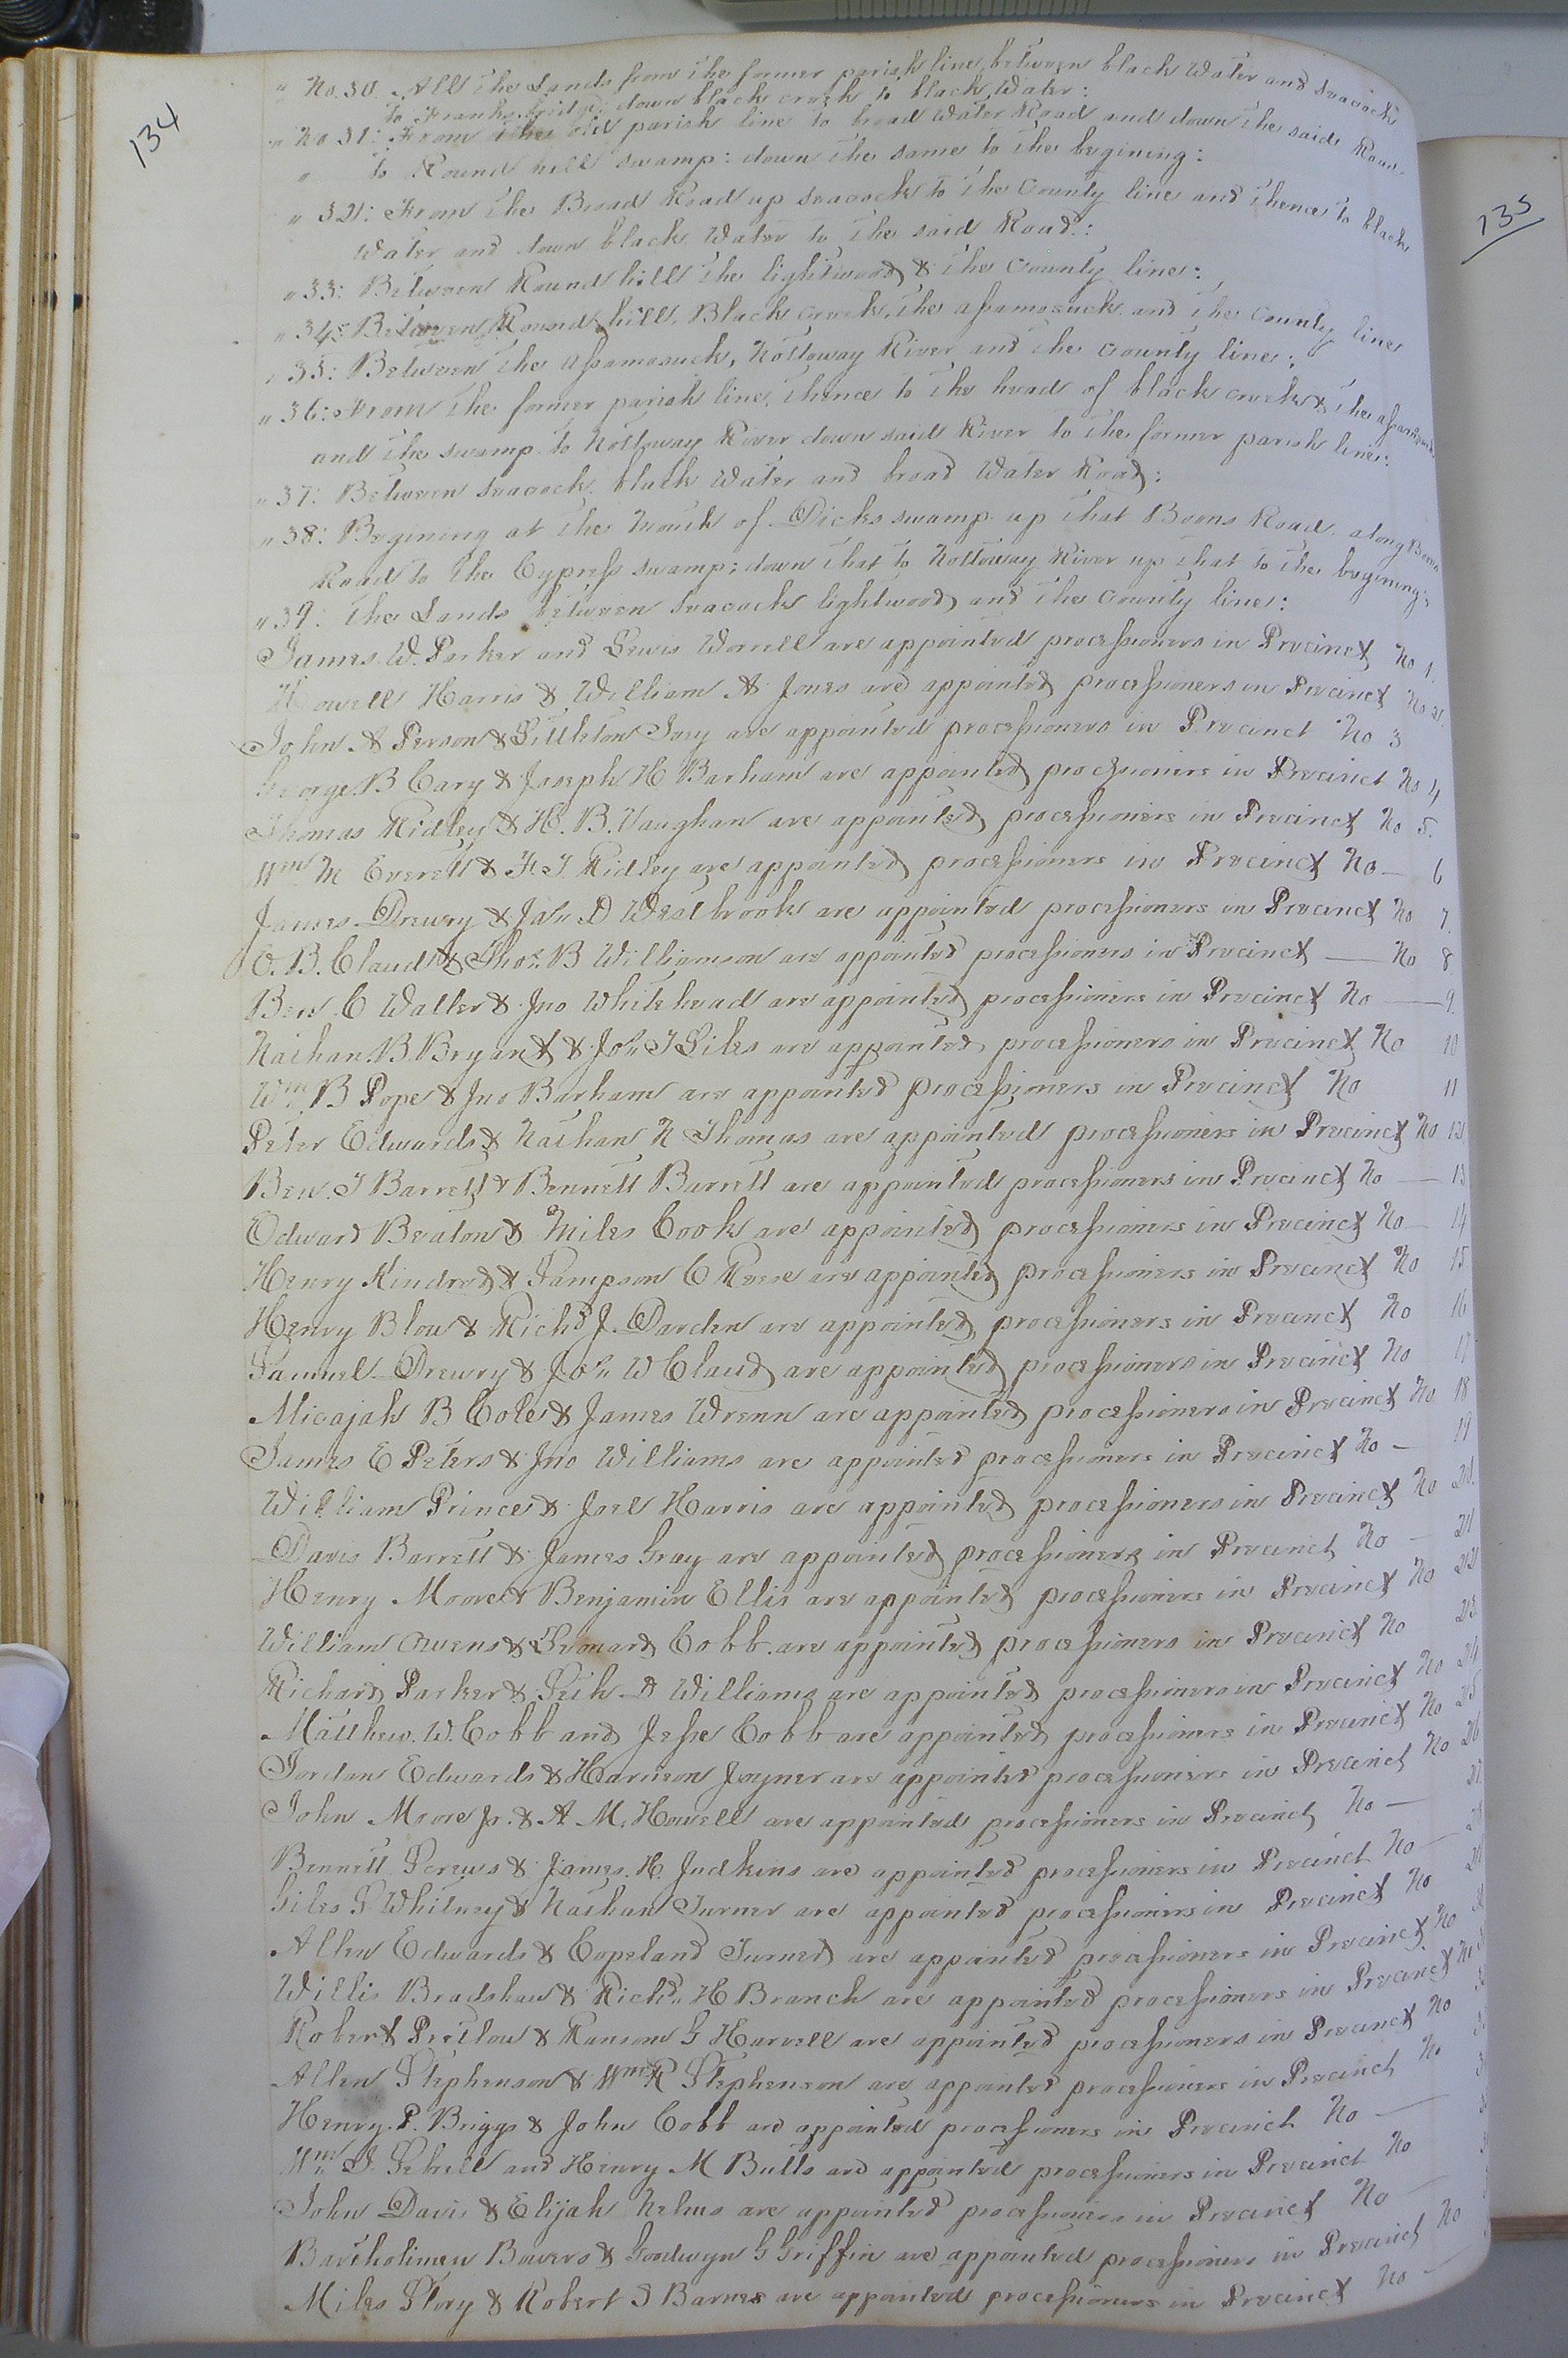 134
" No. 30. All the Lands from the former parish line, between black Water and Seacock
To Franks bridge: down black creek to black Water:
" No 31: From the old parish line to broad Water Road and down the said Road
" To Round hill swamp: down the same to the begining:
" 32: From the Broad Road up seacock to the County line and thence to black
Water and down black Water to the said Road:
" 33: Between Round hill the lightwood & the County line:
" 34: Between Round hill, Black creek, the aſsamosuck and the County line
" 35: Between the aſsamosuck, Nottoway River and the County line:
" 36: From the former parish line, thence to the head of black creek & the aſsamosuck
and the swamp to Nottoway River down said River to the former parish line:
" 37: Between seacock black Water and broad Water Road:
" 38: Begining at the mouth of Dicks swamp up that Boons Road, along Boons
Road to the Cypreſs swamp; down that to Nottoway River up that to the begining:
" 39: The Lands between seacock lightwood and the County line:
James W. Parker and Lewis Worrell are appointed proceſsioners in Precinct No 1.
Howell Harris & William A. Jones are appointed proceſsioners in Precinct No 2.
John A Person & Littleton Ivey are appointed proceſsioners in Precinct No 3
George B Cary & Joseph H Barham are appointed proceſsioners in Precinct No 4
Thomas Ridley & H. B. Vaughan are appointed proceſsioners in Precinct No 5.
Wm M Everett & F. T Ridley are appointed proceſsioners in Precinct No — 6
James Drewry & Jas. D Westbrook are appointed proceſsioners in Precinct No 7.
C. B. Claud & Thos. B Williamson are appointed proceſsioners in Precinct — No 8
Ben. C Waller & Jno Whitehead are appointed proceſsioners in Precinct No — 9.
Nathan B. Bryant & Jos. T Liles are appointed proceſsioners in Precinct No 10
Wm B Pope & Jno Barham are appointed proceſsioners in Precinct No 11
Peter Edwards & Nathan N Thomas are appointed proceſsioners in Precinct No 12
Ben. T Barrett & Bennett Barrett are appointed proceſsioners in Precinct No — 13
Edward Beaton & Miles Cook are appointed proceſsioners in Precinct No 14
Henry Kindred & Sampson C Reese are appointed proceſsioners in Precinct No 15
Henry Blow & Richd J. Darden are appointed proceſsioners in Precinct No 16
Samuel Drewry & Jos. W Claud are appointed proceſsioners in Precinct No 17
Micajah B Cole & James Wrenn are appointed proceſsioners in Precinct No 18
James E Peters & Jno Williams are appointed proceſsioners in Precinct No — 19
William Prince & Joel Harris are appointed proceſsioners in Precinct No 20.
Davis Barrett & James Gray are appointed proceſsioners in Precinct No — 21
Henry Moore & Benjamin Ellis are appointed proceſsioners in Precinct No 22
William Owens & Leonard Cobb are appointed proceſsioners in Precinct No 23.
Richard Parker & Seth D Williams are appointed proceſsioners in Precinct No 24
Matthew. W. Cobb and Jeſse Cobb are appointed proceſsioners in Precinct No 25
Jordan Edwards & Harrison Joyner are appointed proceſsioners in Precinct No 26
John Moore Jr. & A. M. Howell are appointed proceſsioners in Precinct No — 27.
Bennett Screws & James. H. Judkins are appointed proceſsioners in Precinct No —
Giles S Whitney & Nathan Turner are appointed proceſsioners in Precinct No
Allen Edwards & Copeland Turner are appointed proceſsioners in Precinct No
Willis Bradshaw & Richd. H Branch are appointed proceſsioners in Precinct No
Robert Pretlow & Ranson G Harvell are appointed proceſsioners in Precinct No
Allen Stephenson & Wm R Stephenson are appointed proceſsioners in Precinct No
Henry. P. Briggs & John Cobb are appointed proceſsioners in Precinct No —
Wm. J. Sebrell and Henry M Butts are appointed proceſsioners in Precinct No
John Davis & Elijah Nelms are appointed proceſsioners in Precinct No
Bartholimew Bowers & Goodwyn G Griffin are appointed proceſsioners in Precinct No
Miles Story & Robert S Barnes are appointed proceſsioners in Precinct No —
135